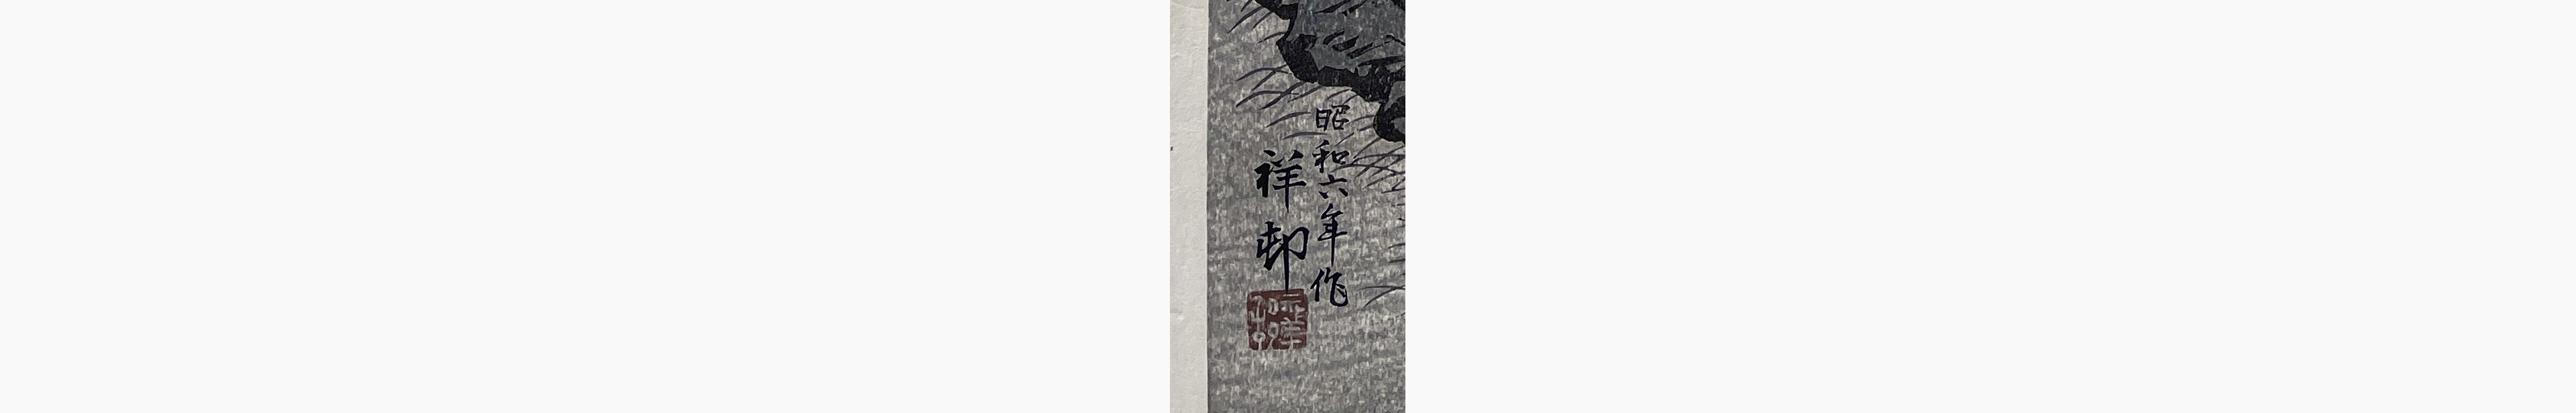 昭和六年作
祥邨